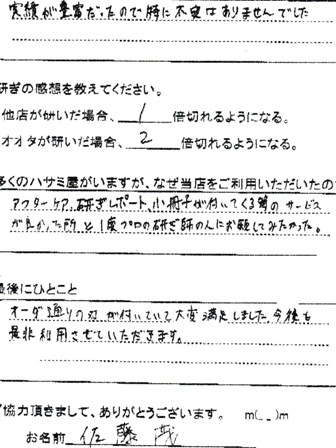 実績が豊富だったので特に不安はありませんでした
研ぎの感想を教えてください。
他店が研いだ場合、 1 倍切れるようになる。
オオタが研いだ場合、 2 倍切れるようになる。
多くのハサミ屋がいますが、なぜ当店をご利用いただいたの
アフターケア、研ぎレポート、小冊子が付いてくる等のサービス
が良かった所と1度プロの研ぎ師の人にお願してみたかった。
最後にひとこと
オーダー通りの刃が付いていて大変満足しました。今後も
是非利用させていただきます。
協力頂きまして、ありがとうございます。 m(__)m
お名前 佐藤